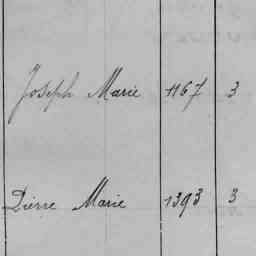 Joseph Marie 1167 3
Pierre Marie 1393 3